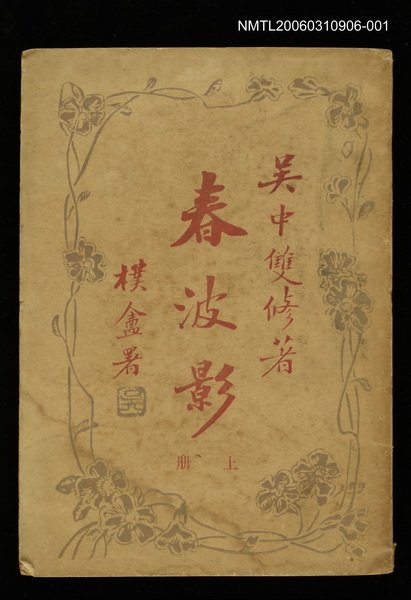 NMTL20060310906-001
吴中雙修著
春波影
上冊
樸盦署